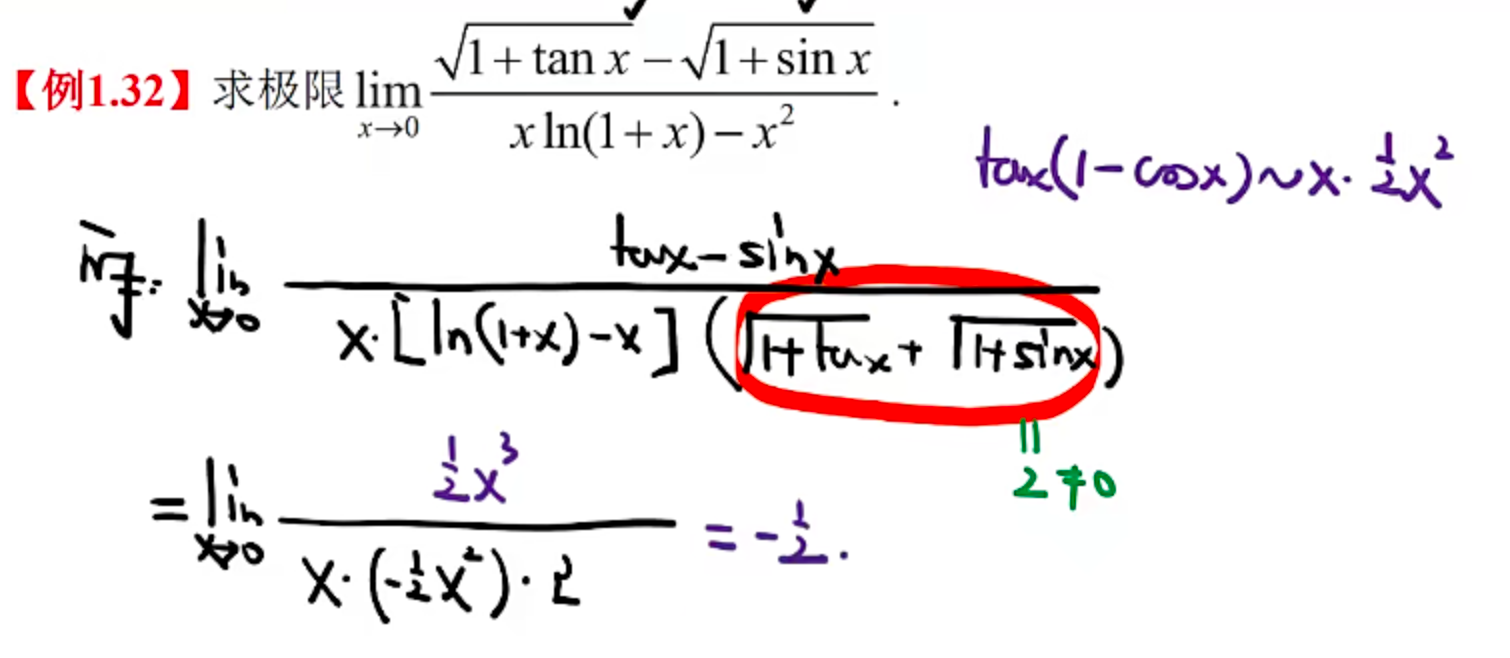 【例1.32】求极限 lim_{x→0} (√(1+tan x) − √(1+sin x)) / (x ln(1+x) − x²) .
tanx(1-cosx)~x·½x²
lim_{x→0} (tanx-sinx) / (x·[ln(1+x)-x](√(1+tanx)+√(1+sinx)))
=2≠0
= lim_{x→0} (½x³) / (x·(-½x²)·2) = -½.